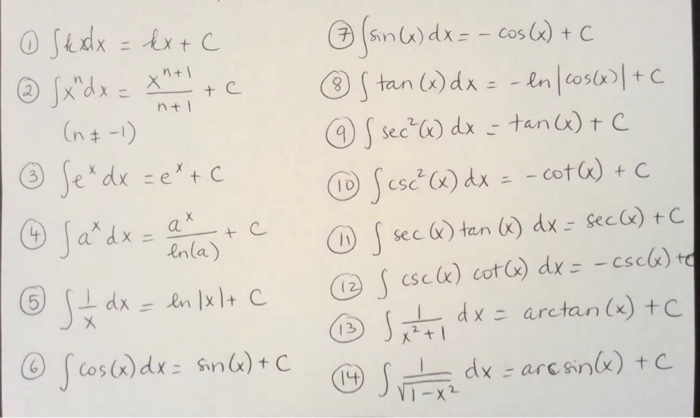 ① ∫k dx = kx + C
② ∫xⁿdx = xⁿ⁺¹/(n+1) + C
(n ≠ -1)
③ ∫eˣ dx = eˣ + C
④ ∫aˣ dx = aˣ/ln(a) + C
⑤ ∫ 1/x dx = ln|x| + C
⑥ ∫cos(x) dx = sin(x) + C
⑦ ∫sin(x) dx = - cos(x) + C
⑧ ∫ tan(x) dx = - ln|cos(x)| + C
⑨ ∫ sec²(x) dx = tan(x) + C
⑩ ∫ csc²(x) dx = - cot(x) + C
⑪ ∫ sec(x) tan(x) dx = sec(x) + C
⑫ ∫ csc(x) cot(x) dx = - csc(x) + C
⑬ ∫ 1/(x²+1) dx = arctan(x) + C
⑭ ∫ 1/√(1-x²) dx = arcsin(x) + C